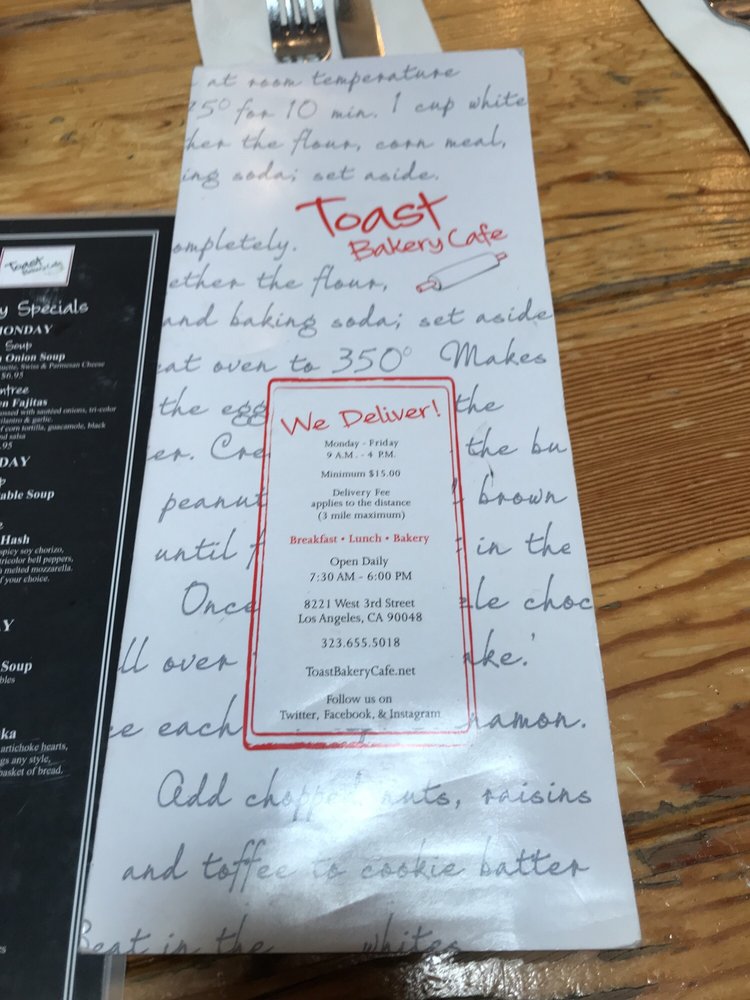 at room temperature
for 10 min. 1 cup white
the flour, corn meal,
soda; set aside.
Toast
Bakery Cafe
the flour,
and baking soda; set aside
oven to 350° Makes
the egg the
the bu
peanut brown
until in the
Once choc
over
each
Add nuts, raisins
and toffee to cookie batter
Beat in the whites
We Deliver!
Monday - Friday
9 A.M. - 4 P.M.
Minimum $15.00
Delivery Fee
applies to the distance
(3 mile maximum)
Breakfast • Lunch • Bakery
Open Daily
7:30 AM - 6:00 PM
8221 West 3rd Street
Los Angeles, CA 90048
323.655.5018
ToastBakeryCafe.net
Follow us on
Twitter, Facebook, & Instagram
Toast
Specials
MONDAY
Soup
Onion Soup
Swiss & Parmesan Cheese
$6.95
Fajitas
with sautéed onions, tri-color
& garlic.
corn tortilla, guacamole, black
and salsa
.95
DAY
Soup
Hash
spicy soy chorizo,
tricolor bell peppers,
melted mozzarella.
your choice.
Soup
artichoke hearts,
any style,
basket of bread.